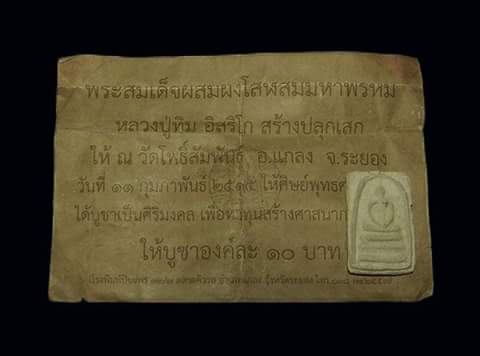 พระสมเด็จผสมผงโสฬสมมหาพรหม
หลวงปู่ทิม อิสริโก สร้างปลุกเสก
ให้ ณ วัดโพธิ์สัมพันธ์ อ.แกลง จ.ระยอง
วันที่ ๑๑ กุมภาพันธ์ ๒๕๑๕ ให้ศิษย์พุทธ
ได้บูชาเป็นศิริมงคล เพื่อหาทุนสร้างศาสนา
ให้บูชาองค์ละ ๑๐ บาท